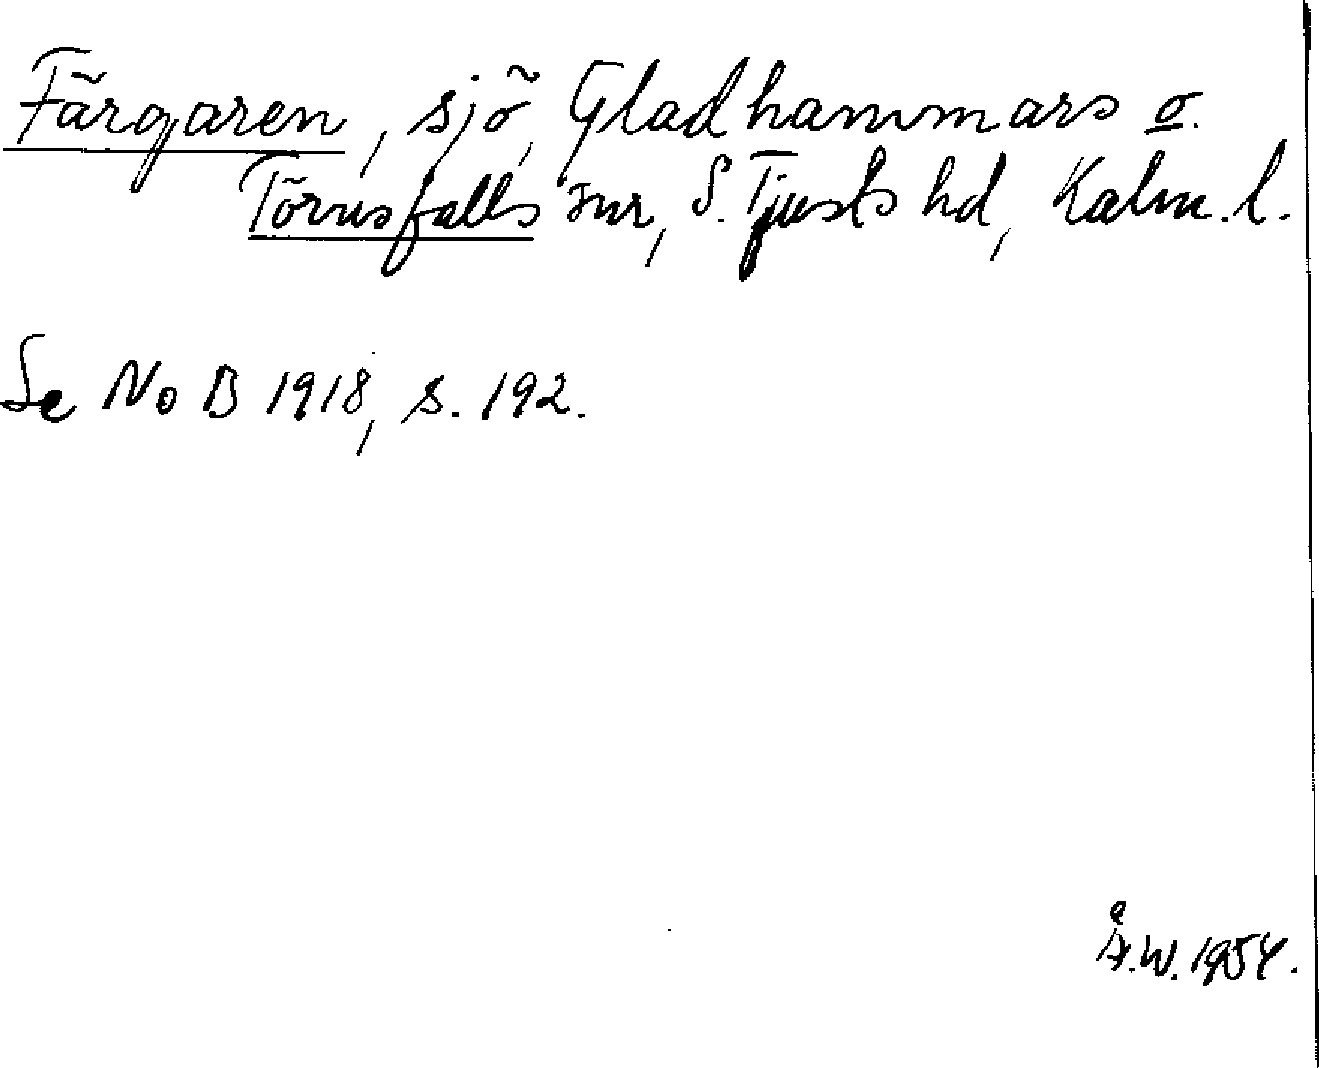 Färgaren, sjö, Gladhammars o.
Törnsfalls snr, S. Tjusts hd, Kalm. l.
Se NoB 1918, s. 192.
Å.W. 1954.